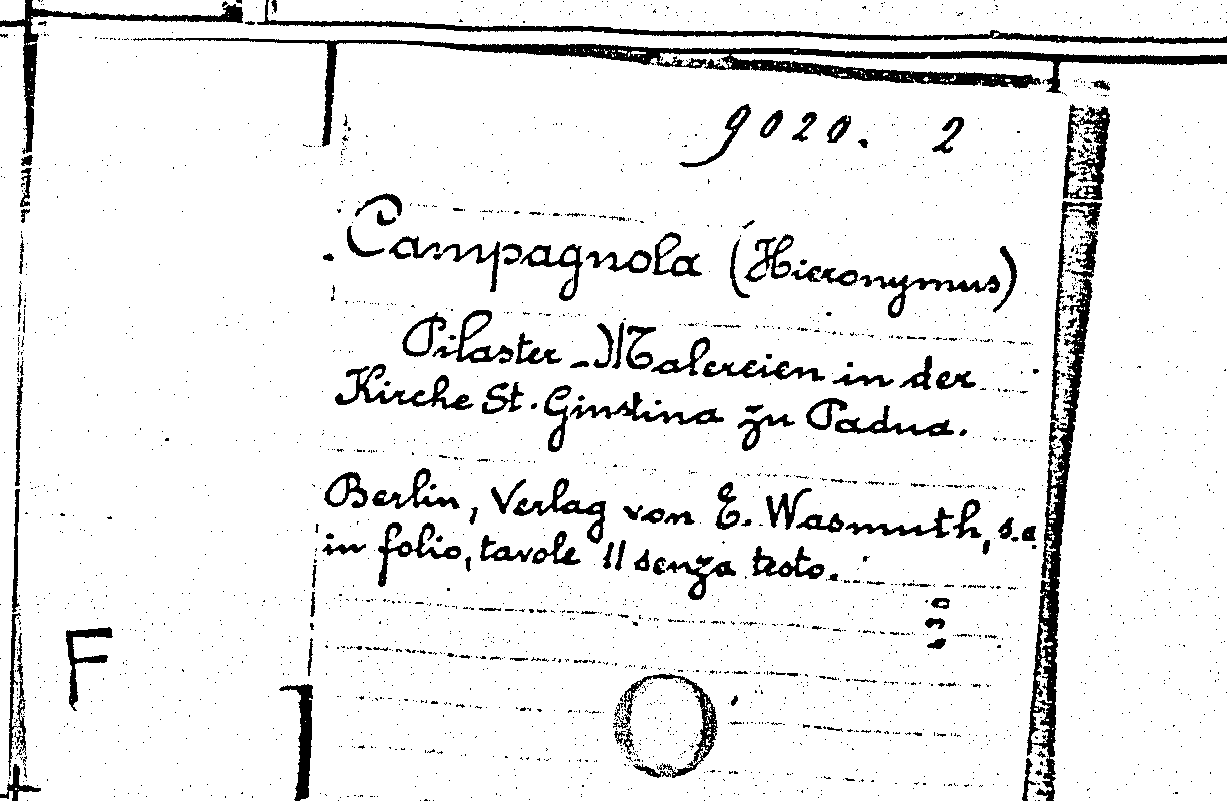 9020. 2
Campagnola (Hieronymus)
Pilaster-Malereien in der
Kirche St. Giustina zu Padua.
Berlin, Verlag von E. Wasmuth, s.a
in folio, tavole 11 senza testo.
F